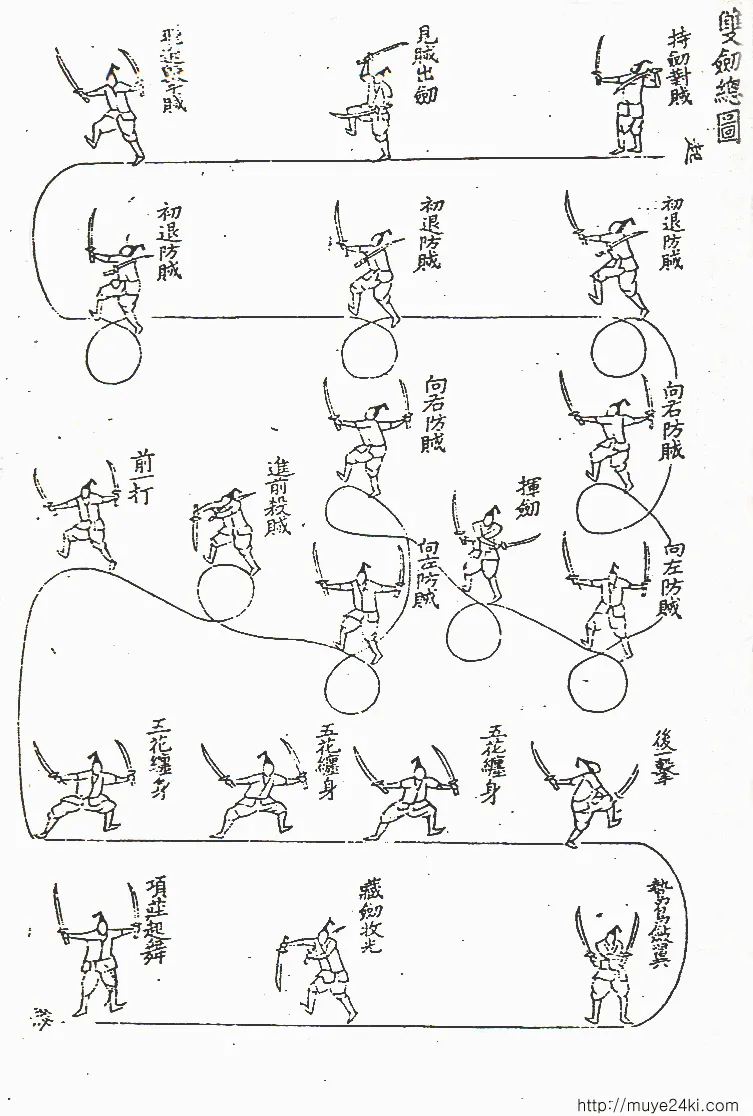 雙劒總圖
持劒對賊
起
見賊出劒
飛進擊賊
初退防賊
初退防賊
初退防賊
向右防賊
向右防賊
向左防賊
揮劒
向左防賊
進前殺賊
前一打
後一擊
五花纏身
五花纏身
五花纏身
鷙鳥斂翼
藏劒收光
項莊起舞
http://muye24ki.com